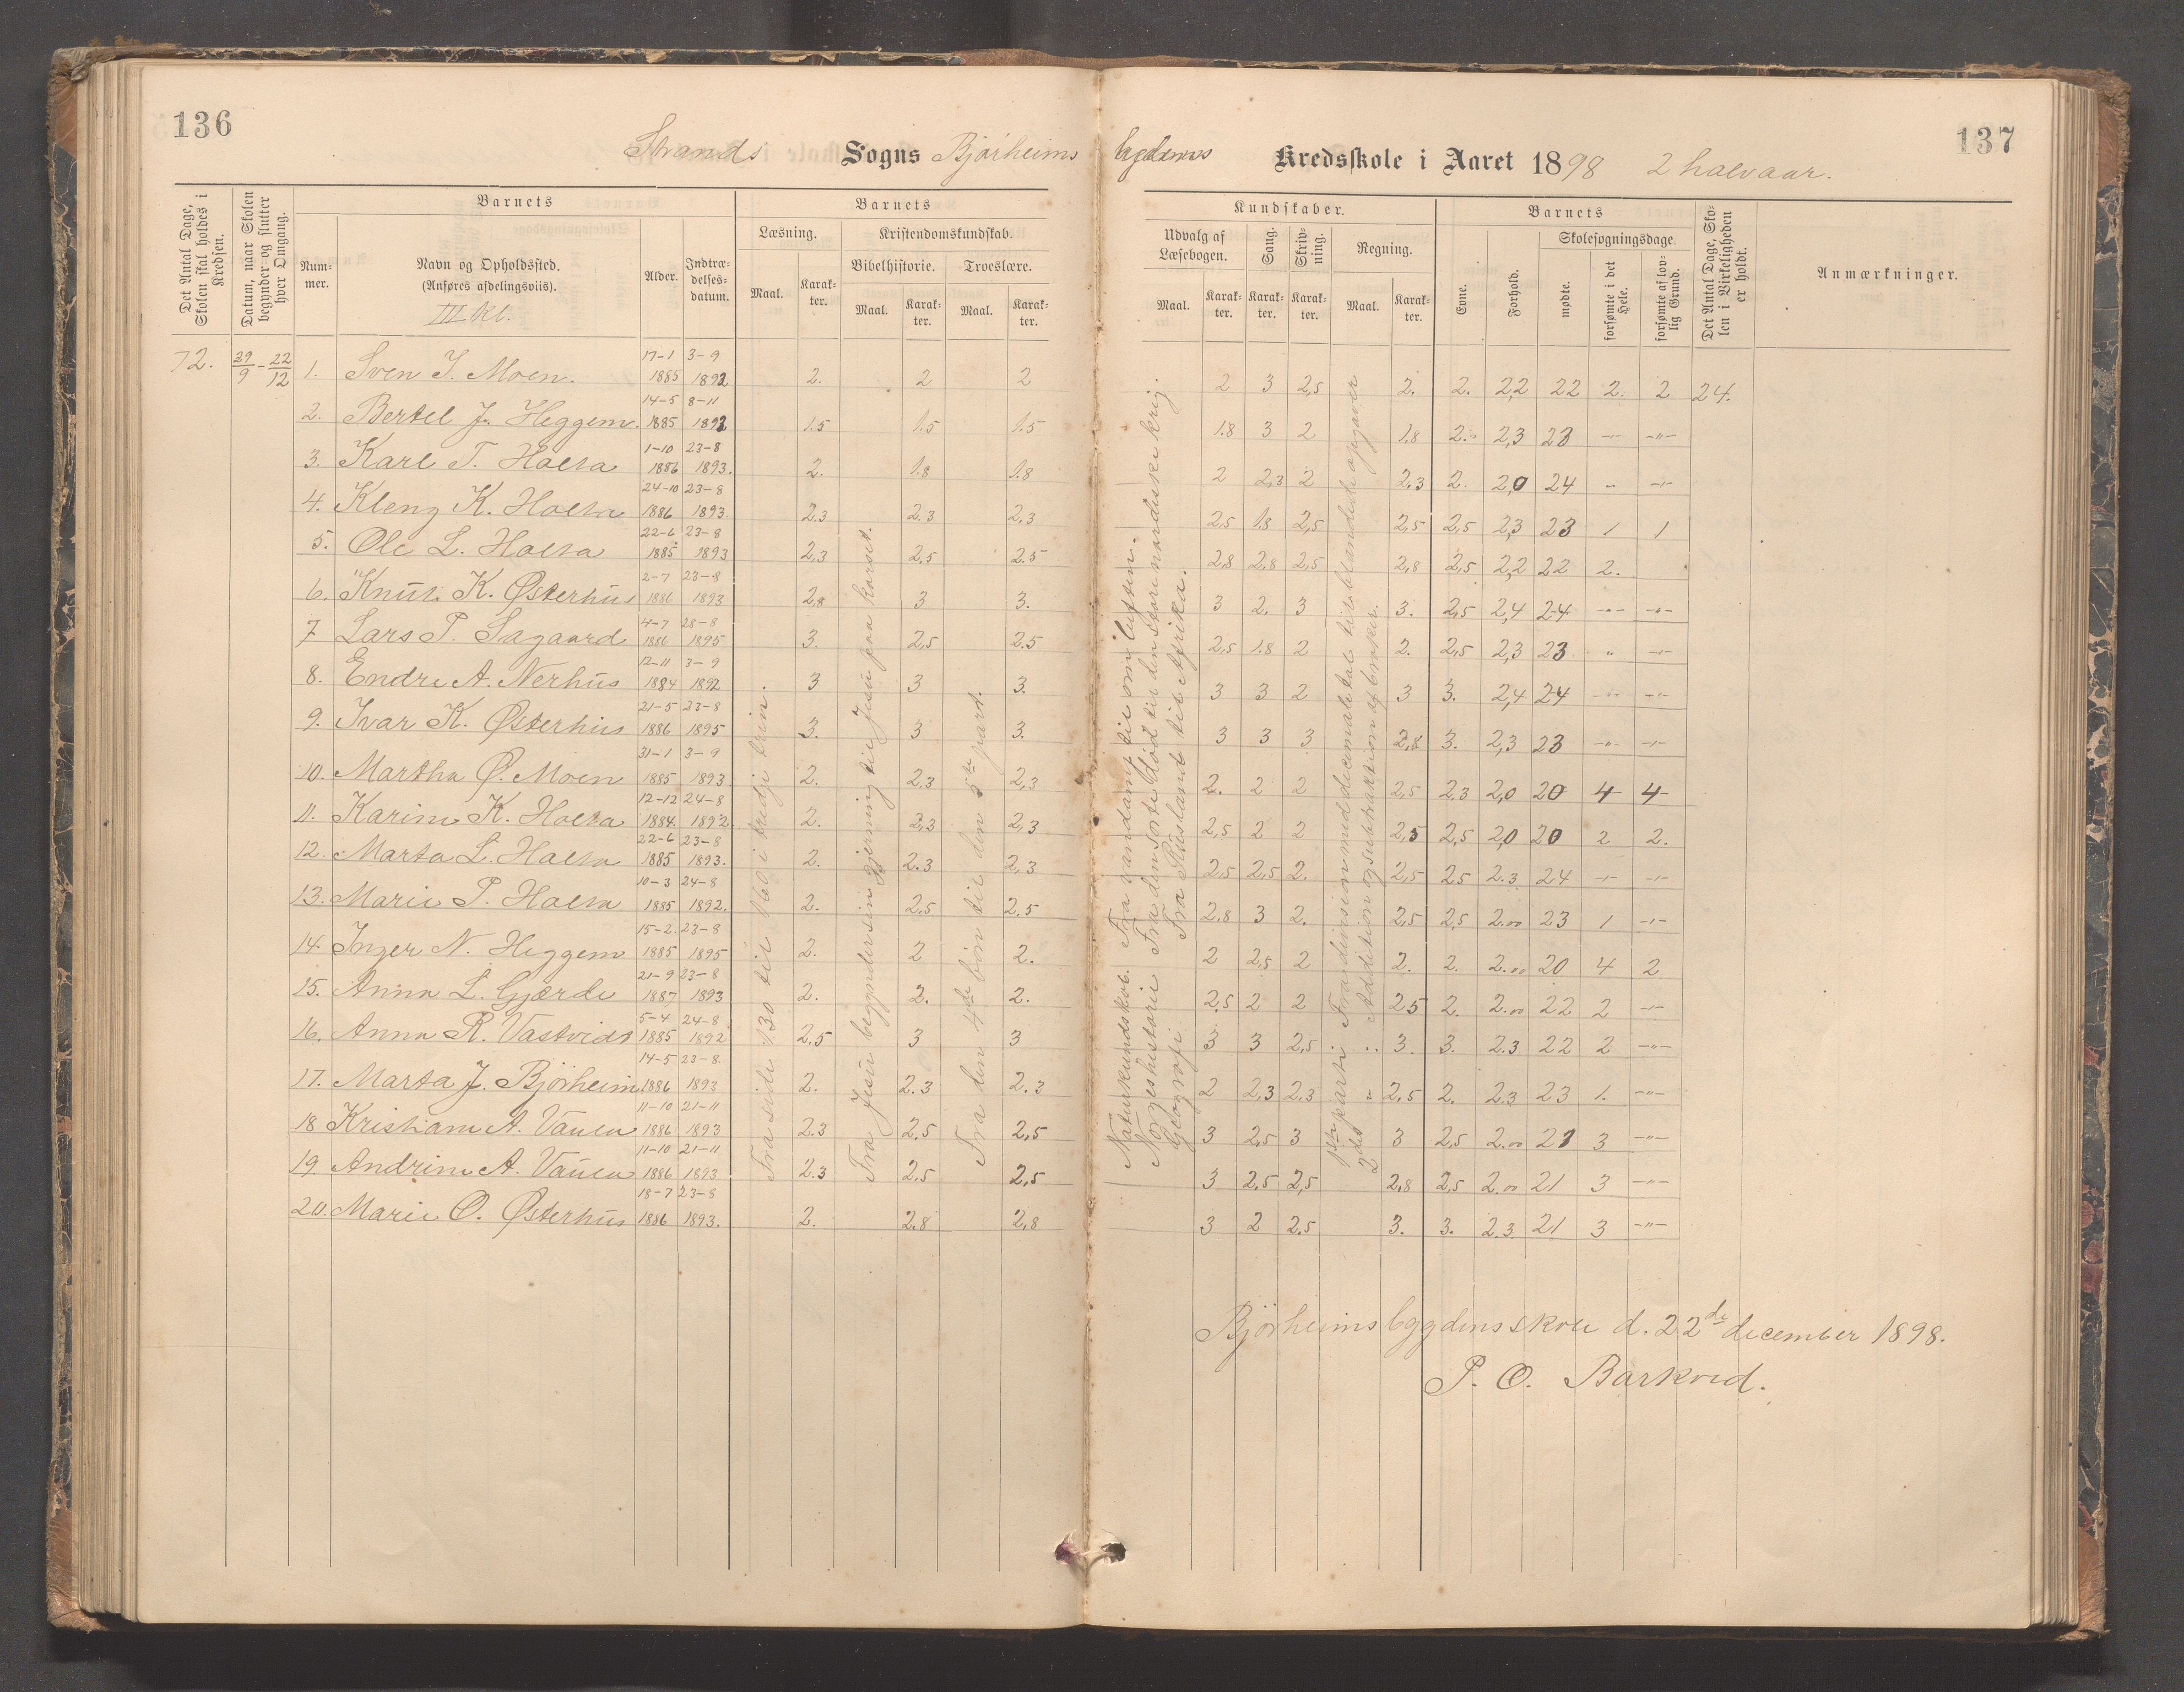 136
137
Strands Sogns Bjørheims bygdens Kredsskole i Aaret 1898 2 halvaar.
Det Antal Dage, Skolen skal holdes i Kredsen.
Datum, naar Skolen begynder og slutter hver Omgang.
Barnets
Nummer.
Navn og Opholdssted.
(Anføres afdelingsviis).
III kl.
Alder.
Indtrædelsesdatum.
Barnets
Læsning.
Maal.
Karakter.
Kristendomskundskab.
Bibelhistorie.
Maal.
Karakter.
Troeslære.
Maal.
Karakter.
Kundskaber.
Udvalg af Læsebogen.
Maal.
Karakter.
Sang.
Karakter.
Skrivning.
Karakter.
Regning.
Maal.
Karakter.
Barnets
Evne.
Forhold.
Skolesøgningsdage.
mødte.
forsømte i det Hele.
forsømte af lovlig Grund.
Det Antal Dage, Skolen i Virkeligheden er holdt.
Anmærkninger.
72. 29/9 - 22/12 1. Sven I. Moen. 17-1 1885 3-9 1892 2. 2 2 2 3 2,5 2. 2. 2,2 22 2. 2 24.
2. Bertel J. Heggem. 14-5 1885 8-11 1892 1.5 1.5 1.5 1.8 3 2 1.8 2. 2,3 23 -"- -"-
3. Karl T. Holta 1-10 1886 23-8 1893. 2. 1.8 1.8 2 2,3 2 2,3 2. 2,0 24 " -"-
4. Kleng K. Holta 24-10 1886 23-8 1893. 2.3 2.3 2,3 2,5 1.8 2,5 2,5 2,5 2,3 23 1 1
5. Ole L. Holta 22-6 1885. 23-8 1893 2,3 2,5 2.5 2,8 2.8 2,5 2,8 2,5 2,2 22 2.
6. Knut K. Østerhus 2-7 1886 23-8 1893 2,8 3 3. 3 2. 3 3. 2,5 2,4 24 -"- -"-
7 Lars P. Sagaard 4-7 1886 28-8 1895 3. 2,5 2.5 2,5 1.8 2 2. 2,5 2,3 23 " -"-
8. Endre A. Nerhus 12-11 1884 3-9 1892 3 3 3. 3 3 2 3 3. 2,4 24 -"- -"-
9. Ivar K. Østerhus 21-5 1886 23-8 1895 3. 3 3. 3 3 3 2,8 3. 2,3 23 -"- -"-
10. Martha Ø. Moen 31-1 1885 3-9 1893 2. 2.3 2,3 2. 2 2 2,5 2,3 2,0 20 4 4
11. Karine K. Holta 12-12 1884. 24-8 1892 2. 2,3 2,3 2,5 2 2 2,5 2,5 2,0 20 2 2.
12. Marta L. Holta 22-6 1885 23-8 1893. 2. 2.3 2,3 2,5 2,5 2. 2,5 2,5 2.3 24 -"- -"-
13. Marie P. Holta 10-3 1885 24-8 1892. 2. 2,5 2.5 2,8 3 2. 2,5 2,5 2.00 23 1 -"-
14 Inger N. Heggem 15-2. 1885 23-8 1895 2. 2 2. 2 2,5 2 2. 2. 2.00 20 4 2
15. Anna L. Gjærde 21-9 1887 23-8 1893 2. 2. 2. 2.5 2 2 2.5 2. 2.00 22 2 -"-
16. Anna R. Vastvidt 5-4 1885 24-8 1892 2.5 3 3 3 3 2,5 3. 3. 2.3 22 2 -"-
17. Marta J. Bjørheim 14-5 1886 23-8. 1893 2. 2.3 2.3 2 2,3 2,3 2,5 2. 2.3 23 1. -"-
18 Kristiane A. Vaula 11-10 1886 21-11 1893 2.3 2,5 2,5 3 2,5 3 3 2,5 2.00 21 3 -"-
19. Andrine A. Vaula 11-10 1886 21-11 1893 2.3 2,5 2,5 3 2,5 2,5 2,8 2,5 2.00 21 3 -"-
20. Marie O. Østerhus 18-7 1886 23-8 1893. 2. 2.8 2,8 3 2 2,5 3. 3. 2.3 21 3 -"-
Fra side 130 til 160 i tredje trin.
Fra Jesu begynder sin gjerning til Jesu paa korset.
Fra den 4de bøn til den 5te part.
Naturkundskab. Fra vanddamp til om luften.
Norgeshistorie Fra den sorte død til den store nordiske krig.
Geografi Fra Rusland til Afrika.
1ste parti Fra division med decimaltal til blandede opgaver
2det " Addition og subtraktion af brøker.
Bjørheimsbygdens skole d. 22de december 1898.
P. O. Barkved.